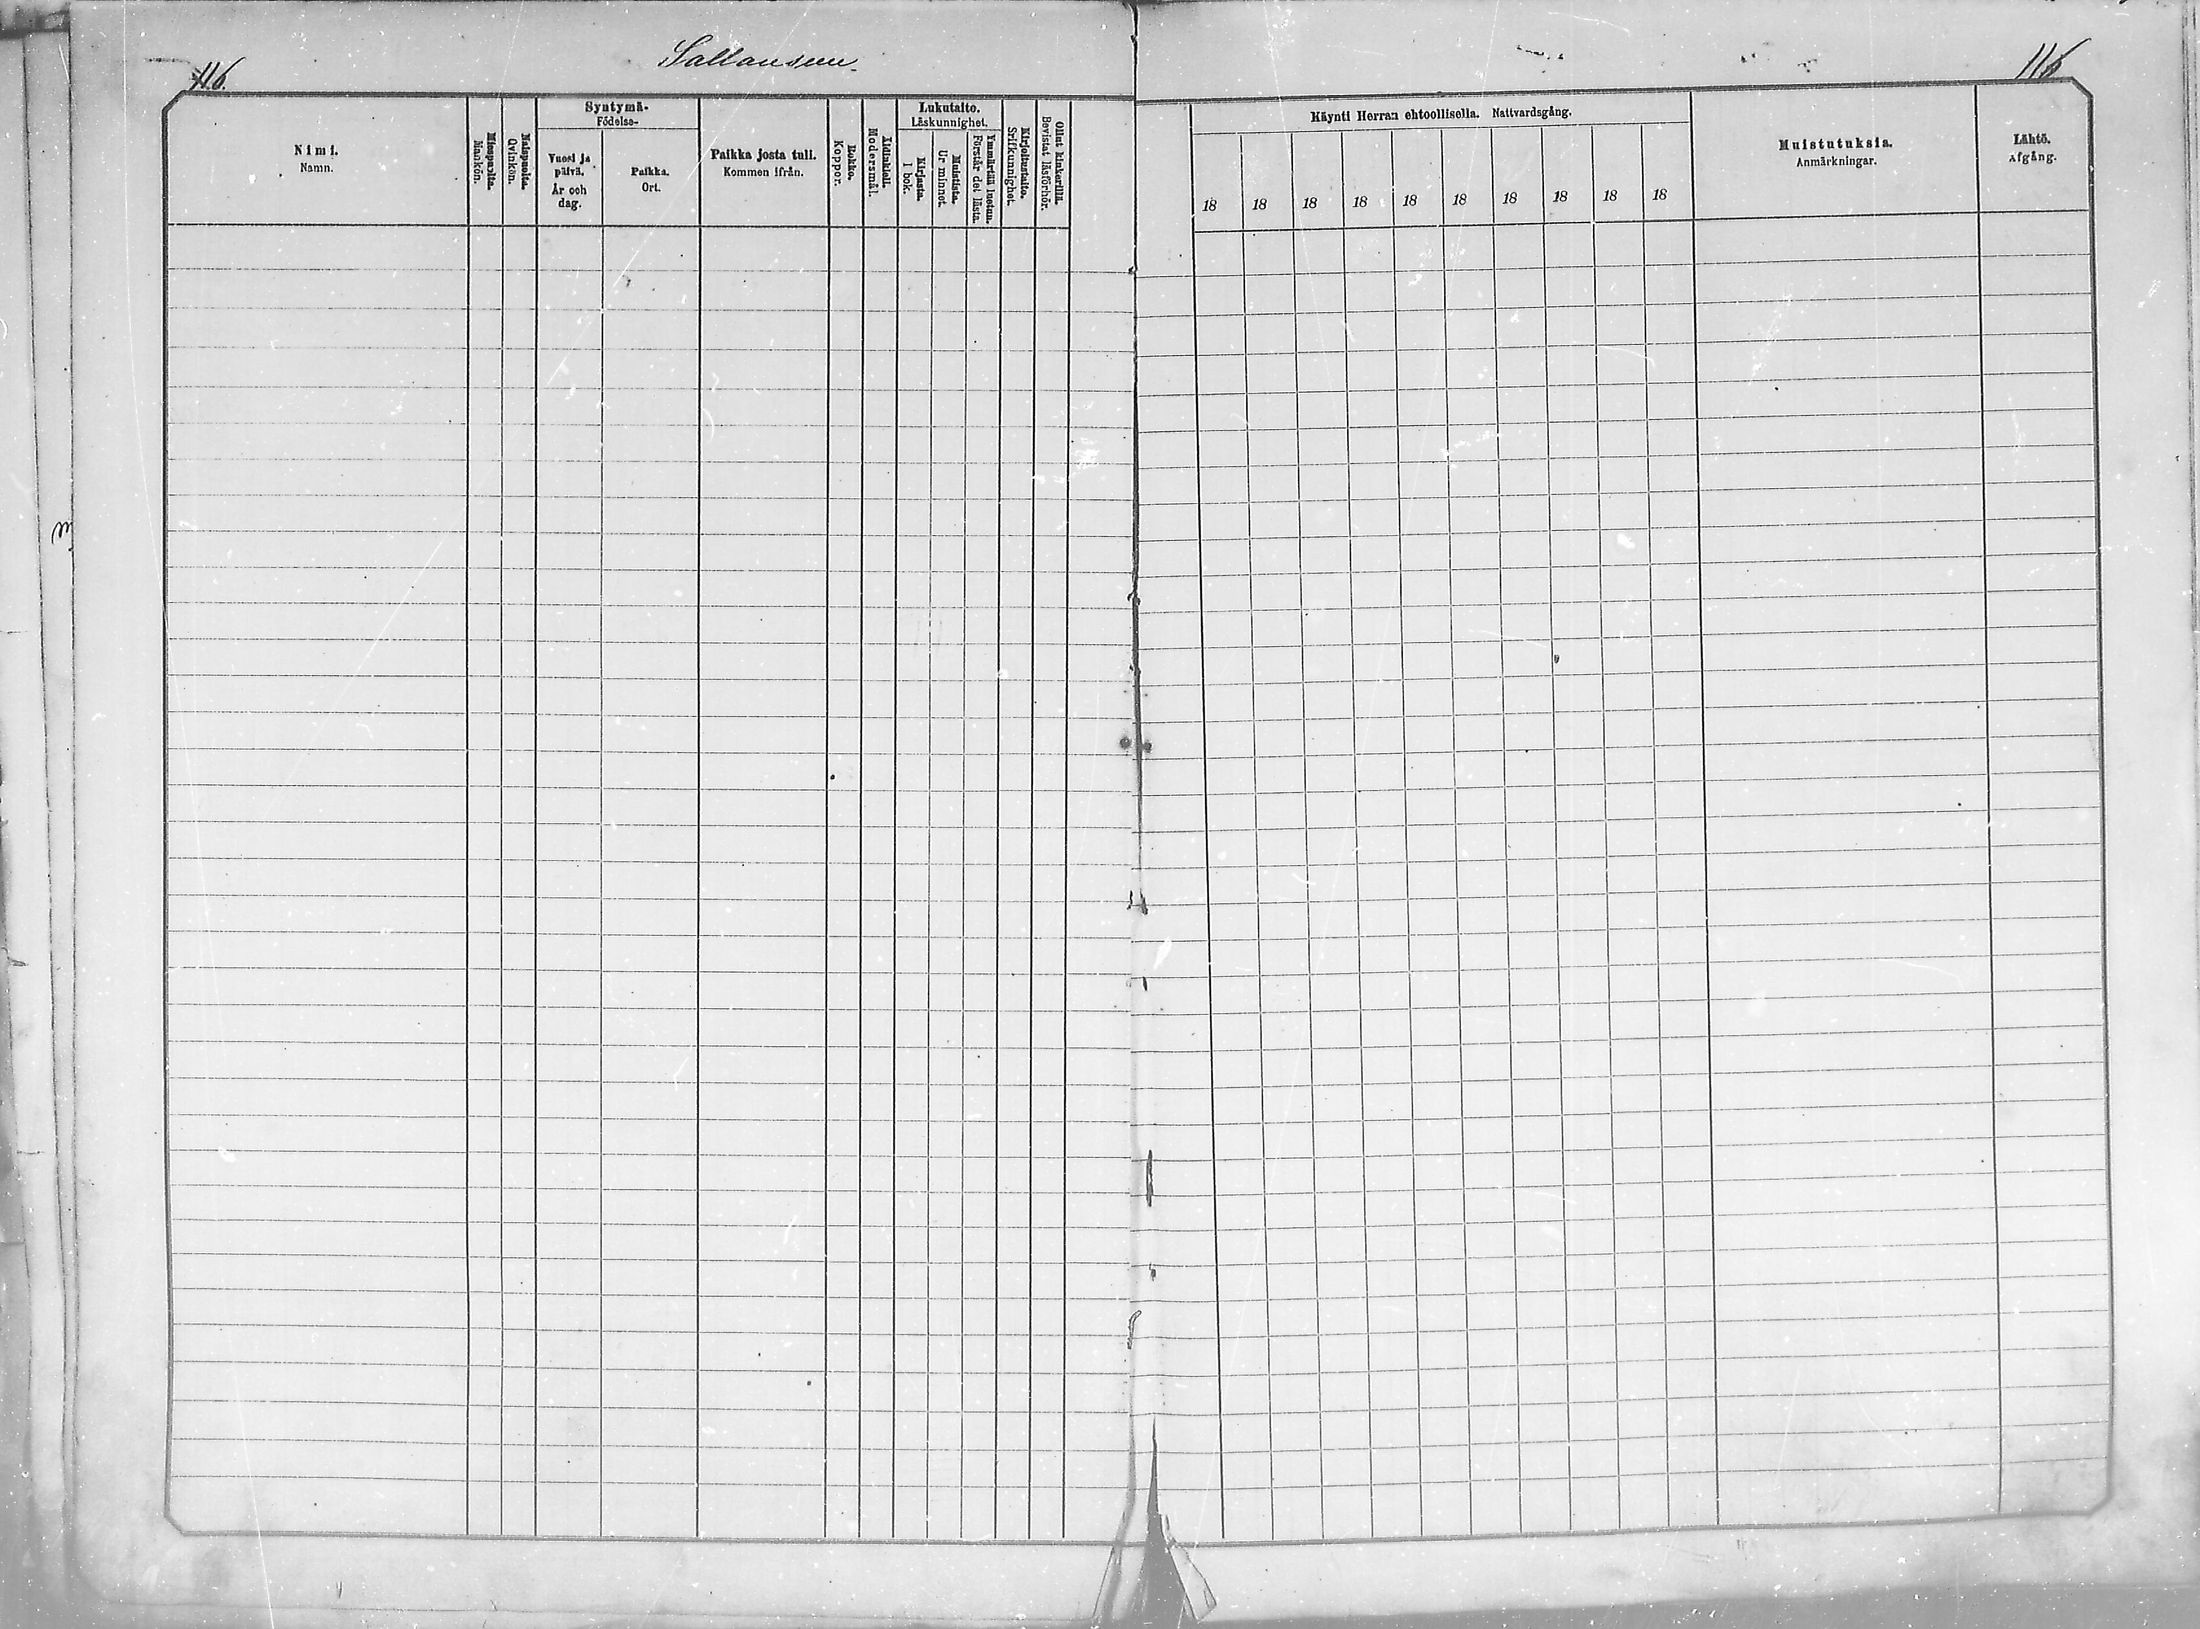 116.
Sallansuu.
116
Nimi.
Namn.
Miespuolia.
Mankön.
Naispuolia.
Qvinkön.
Syntymä-
Födelse-
Vuosi ja
päivä.
År och
dag.
Paikka.
Ort.
Paikka josta tuli.
Kommen ifrån.
Rokko.
Koppor.
Äidinkieli.
Modersmål.
Lukutaito.
Läskunnighet.
Kirjasta.
I bok.
Muistista.
Ur minnet.
Ymmärtää luetun.
Förstår det lästa.
Kirjoitustaito.
Srifkunnighet.
Ollut kinkerillä.
Bevistat läsförhör.
Käynti Herran ehtoollisella. Nattvardsgång.
18 18 18 18 18 18 18 18 18 18
Muistutuksia.
Anmärkningar.
Lähtö.
Afgång.